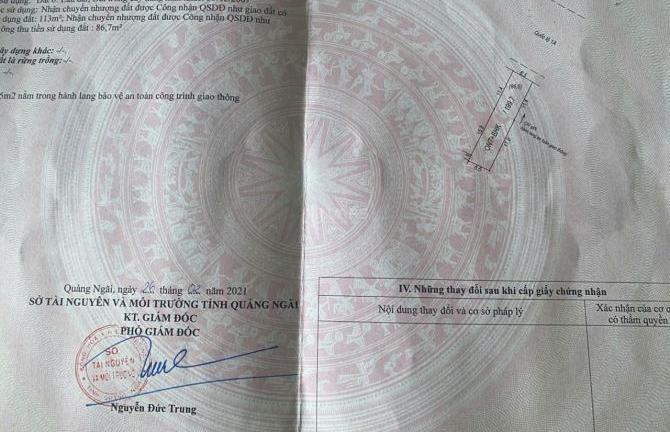 sử dụng: Nhận chuyển nhượng đất được Công nhận QSDĐ như giao đất có
dụng đất: 113m²; Nhận chuyển nhượng đất được Công nhận QSDĐ như
ông thu tiền sử dụng đất : 86,7m²
ây dựng khác: -/-.
ất là rừng trồng: -/-
-/-
6m2 nằm trong hành lang bảo vệ an toàn công trình giao thông
Quốc lộ 1A
ONT+BHK
199.7
Quảng Ngãi, ngày 26 tháng 02 năm 2021
SỞ TÀI NGUYÊN VÀ MÔI TRƯỜNG TỈNH QUẢNG NGÃI
KT. GIÁM ĐỐC
PHÓ GIÁM ĐỐC
SỞ
TÀI NGUYÊN
VÀ MÔI TRƯỜNG
Nguyễn Đức Trung
IV. Những thay đổi sau khi cấp giấy chứng nhận
Nội dung thay đổi và cơ sở pháp lý
Xác nhận của cơ q
có thẩm quyền